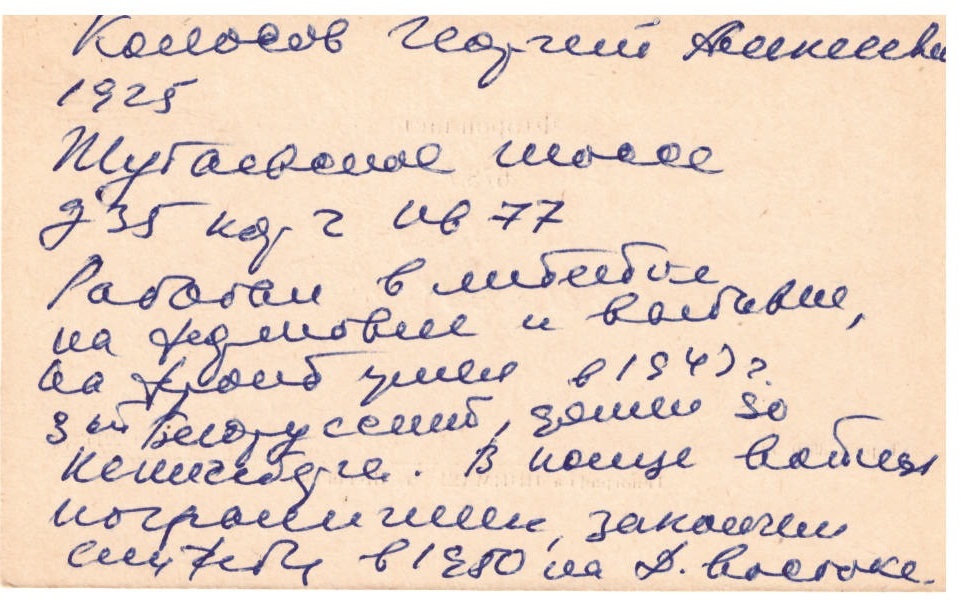 Колосов Георгий Алексееви
1925
Тутаевское шоссе
д 35 кор. 2 кв 77
Работал в литейке
на формовке и выбивке,
на фронт ушел в 1943 г.
3ий Белорусский, дошел до
Кенигсберга. В конце войны
пограничник, закончил
службу в 1950 на Д. Востоке.